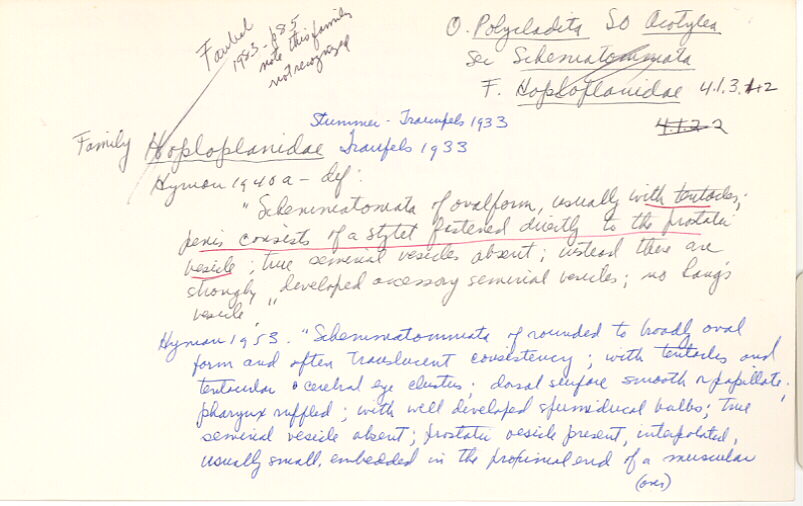 Faubel
1983-p85
note this family
not recognized
O. Polycladita SO Acotylea
Sec Schematommata
F. Hoploplanidae 4.1.3.12
4.1.2.2
Stummer-Traunfels 1933
Family Hoploplanidae Traufels 1933
Hyman 1940a - def:
"Schemmatomata of oval form, usually with tentacles;
penis consists of a stylet fastened directly to the prostatic
vesicle; true seminal vesicles absent; instead there are
strongly developed accessory seminal vesicles; no Lang's
vesicle."
Hyman 1953. "Schemmatommata of rounded to broadly oval
form and often translucent consistency; with tentacles and
tentacular & cerebral eye clusters; dorsal surface smooth or papillate;
pharynx ruffled; with well developed spermiducal bulbs; true
seminal vesicle absent; prostatic vesicle present, interpolated,
usually small, embedded in the proximal end of a muscular
(over)